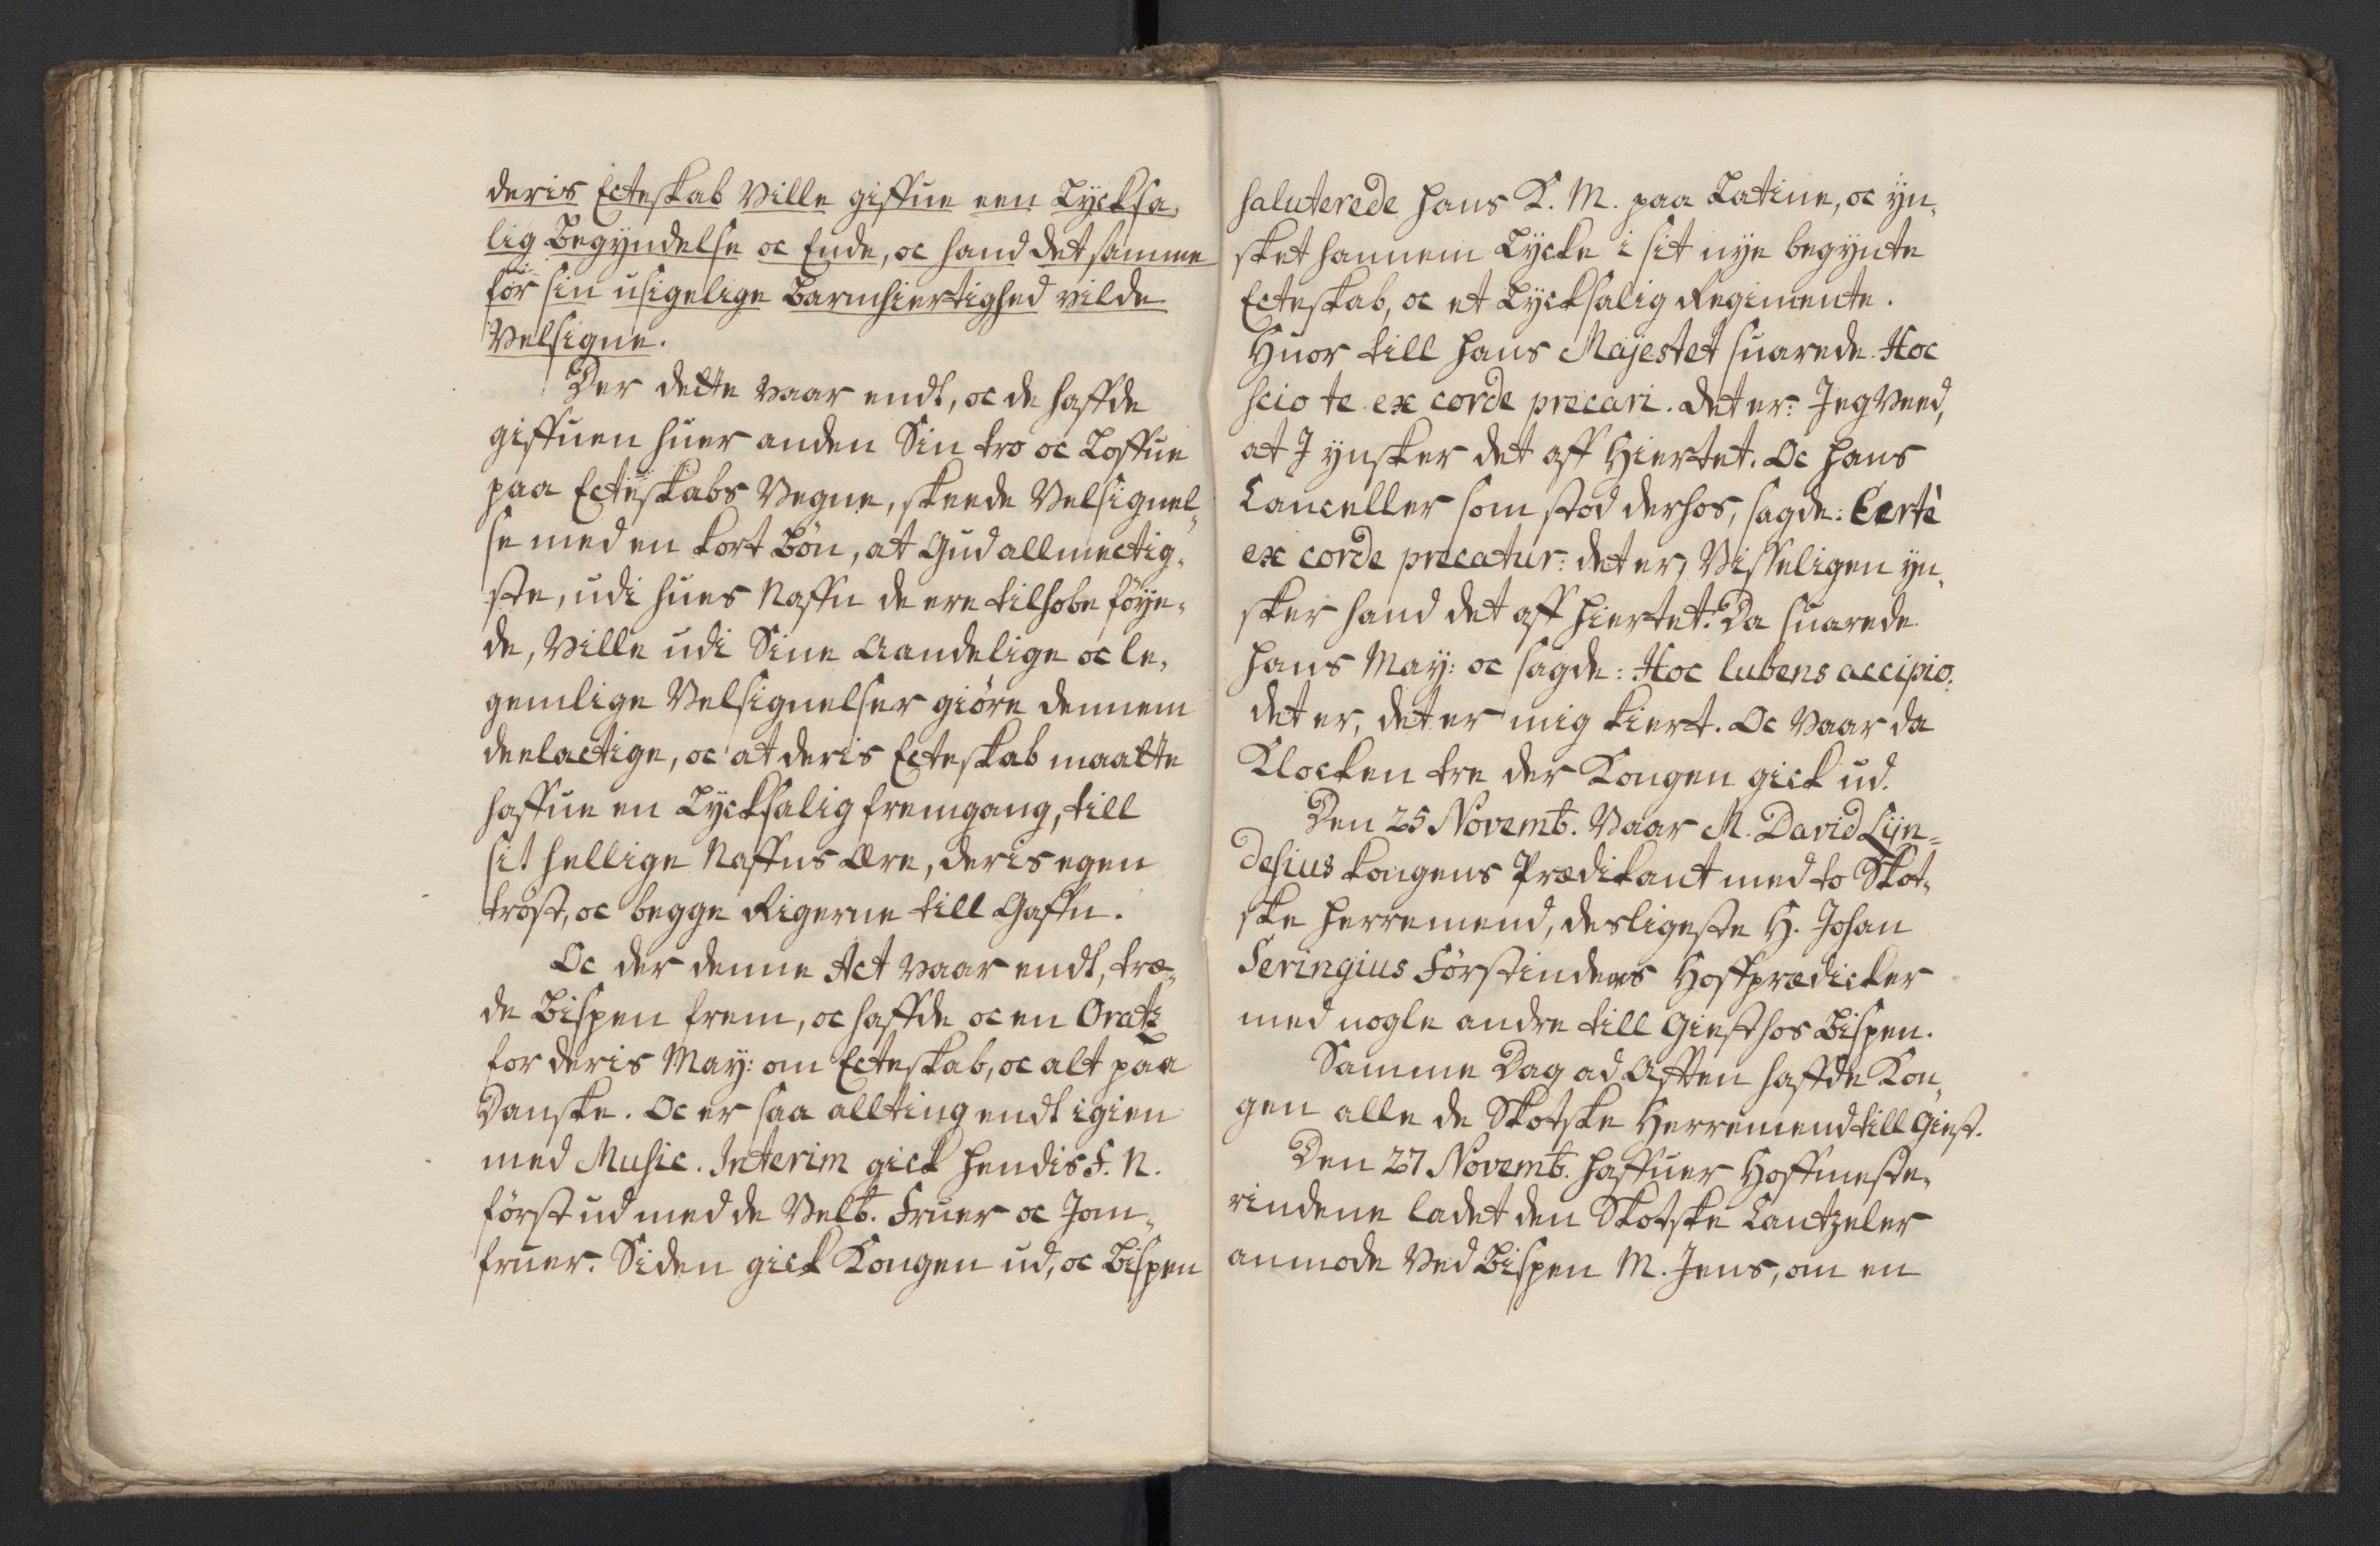 deris Ecteskab Ville giffue een Lycksa,
lig Begyndelse oc Ende, oc hand det samme
for sin usigelige Barmhiertighed vilde
Velsigne.
Der dette vaar endt, oc de haffde
giffuen huer anden Sin tro oc Loffue
paa Ecteskabs Vegne, skeede Velsignel,
se med en kort Bön, at Gud allmectig,
ste, udi hues Naffn de ere tilhobe föye,
de, Ville udi Sine Aandelige oc le,
gemlige Velsignelser giöre dennem
deelactige, oc at deris Ecteskab maatte
haffue en Lycksalig fremgang, till
sit hellige Naffns Ære, deris egen
tröst, oc begge Rigerne till Gaffn.
Oc der denne Act vaar endt, træ,
de Bispen frem, oc haffde oc en Oratz
for deris May: om Ecteskab, oc alt paa
Danske. Oc er saa allting endt igien
med Music. Interim gick hendis F. N.
först ud med de Velb. Fruer oc Jom,
fruer. Siden gick Kongen ud, oc Bispen
saluterede hans K. M. paa Latine, oc yn,
sket hannem Lycke i sit nye begynte
Ecteskab, oc et Lycksalig Regimente.
Huor till hans Majestet suarede. Hoc
scio te ex corde precari. det er: Jeg Veed,
at J ynsker det aff Hiertet. Oc hans
Canceller som stod derhos, sagde: Certè
ex corde precatur: det er, Visseligen yn,
sker hand det aff hiertet. Da suarede
hans May: oc sagde: Hoc lubens accipio.
det er, det er mig kiert. Oc vaar da
Klocken tre der Kongen gick ud.
Den 25 Novemb. Vaar M. David Lyn=
desius kongens Prædikant med to Skot,
ske herremend, desligeste H. Johan
Seringius Förstindens Hoffprædicker
med nogle andre till Giest hos Bispen.
Samme Dag ad Afften haffde Kon,
gen alle de Skotske Herremend till Giest.
Den 27 Novemb. haffuer Hoffmeste,
rindene ladet den Skotske Cantzeler
anmode Ved Bispen M. Jens, om en